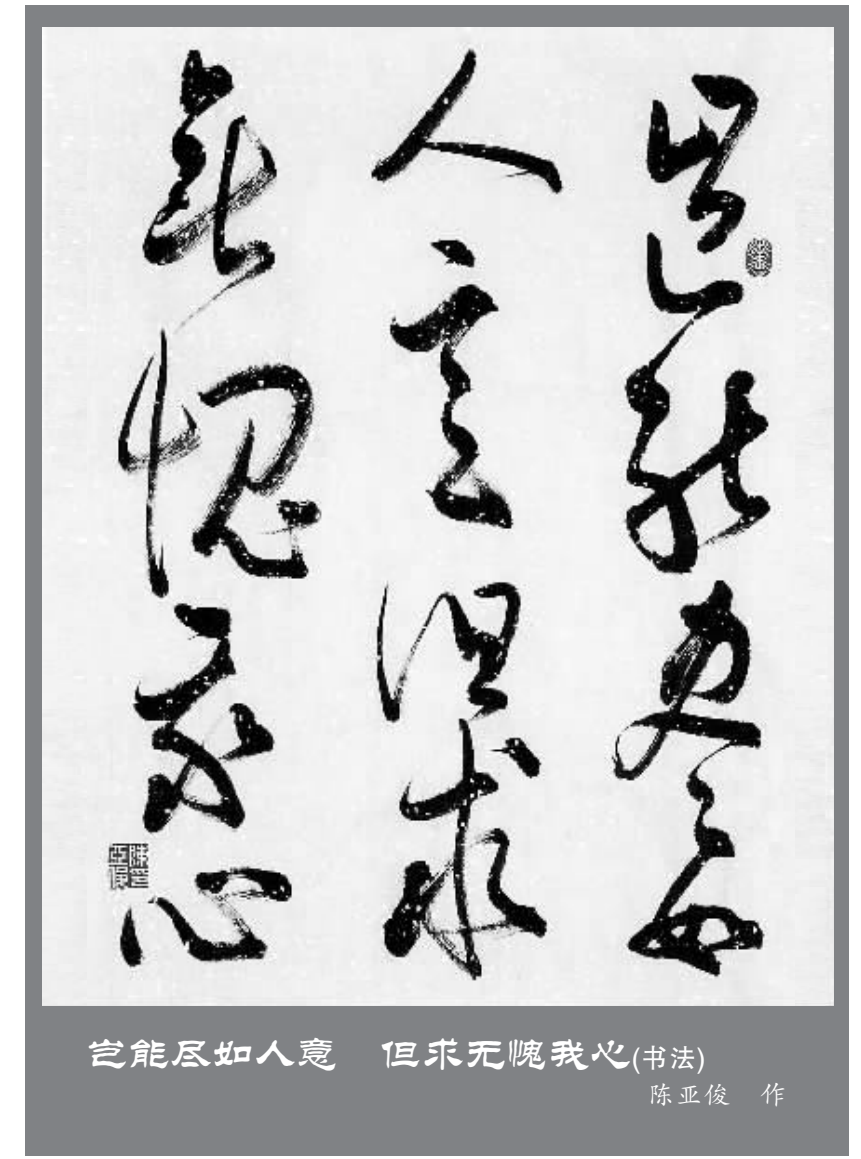 豈能盡如
人意但求
無愧我心
岂能尽如人意　但求无愧我心(书法)
陈亚俊　作